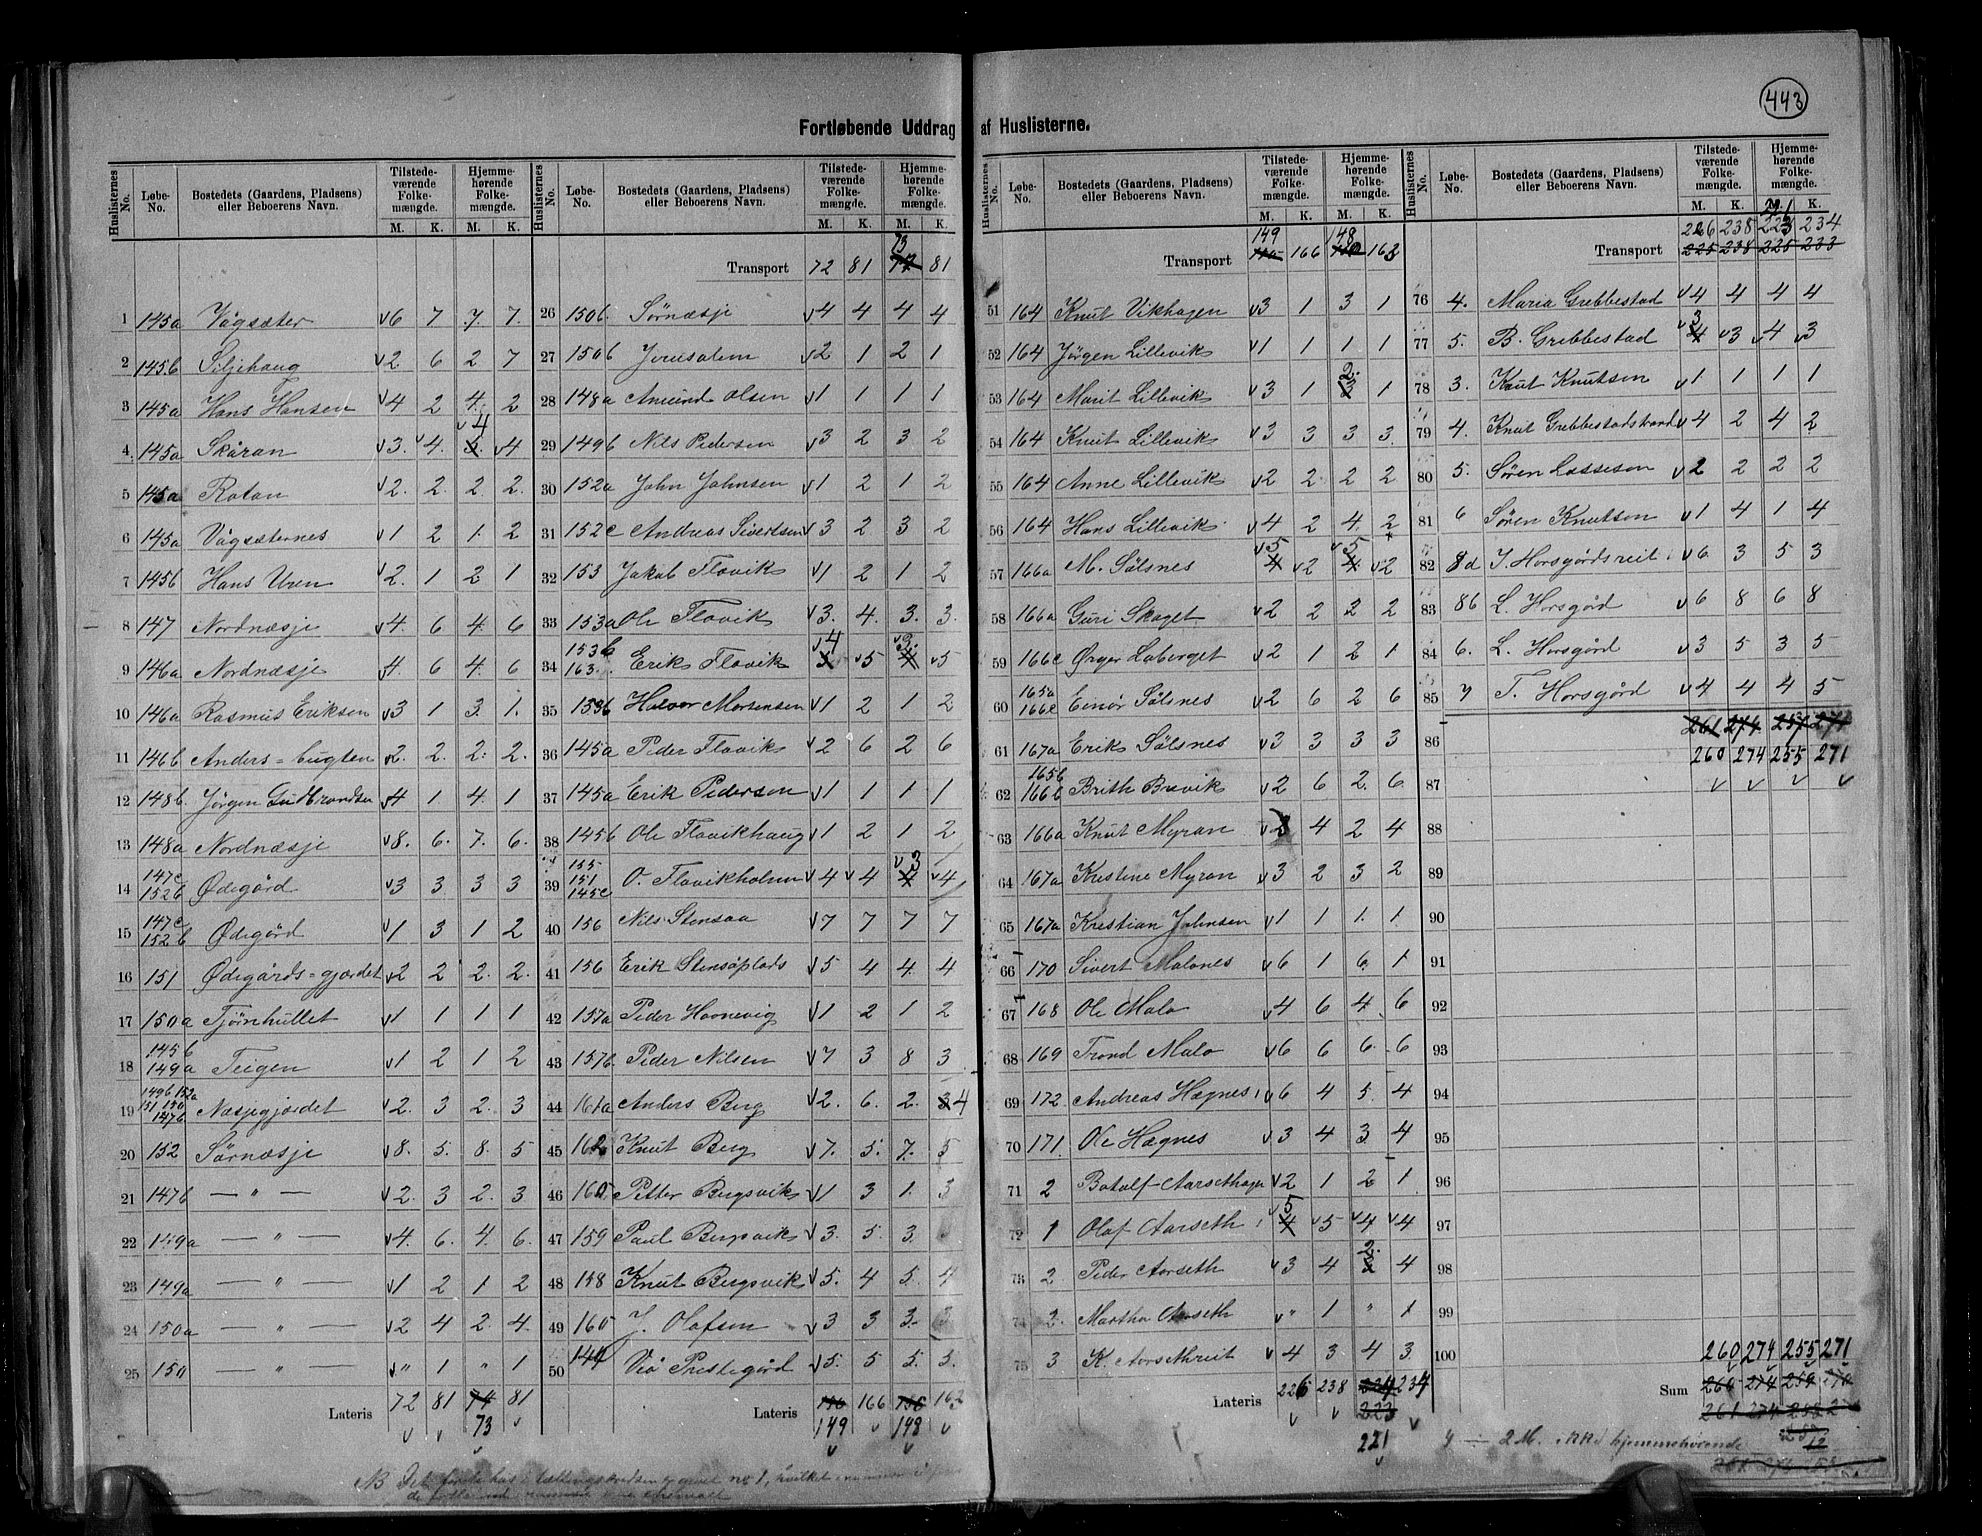 443
Fortløbende Uddrag af Huslisterne.
Huslisternes No. | Løbe-No. | Bostedets (Gaardens, Pladsens) eller Beboerens Navn. | Tilstedeværende Folkemængde. M. K. | Hjemmehørende Folkemængde. M. K.
1 145a Vågsæter 6 7 7. 7.
2 145b Siljehaug 2 6 2 7
3 145a Hans Hansen 4 2 4. 2
4 145a Skåran 3. 4. 4 4
5 145a Rotan 2. 2. 2. 2.
6 145a Vågsæternes 1 2 1. 2
7 145b Hans Uren 2. 1 2 1
8 147 Nordnæsje 4. 6 4. 6
9 146a Nordnæsje 4. 6 4. 6
10 146a Rasmus Eriksen 3 1 3. 1.
11 146b Anders=bugten 2. 2. 2. 2.
12 148b. Jörgen Gudbrandsen 4 1 4. 1
13 148a Nordnæsje 8. 6. 7. 6.
14 147c 152b Ødegård 3 3. 3 3
15 147c 152b Ødegård 1 3 1 2
16 151 Ødegårds=gjærdet 2 2 2. 2.
17 150a Tjørnhullet 1 1 1 1
18 145b 149a Teigen 1 2 1 2
19 149b 152a 151 150 147b Næsjegjærdet 2. 3 2. 3
20 152 Sørnæsje 8. 5. 8. 5
21 147b — " — 2. 3 2. 3
22 149a — " — 4. 6. 4. 6.
23 149a — " — 1 2 1 2
24 150a — " — 2 4 2. 4.
25 150 — " — " 1 " 1
Lateris 72 81 74 81
73
Transport 72 81 73 81
26 150b. Sørnæsje 4 4 4 4
27 150b Jerusalem 2 1 2 1
28 148a Amund Olsen 1 1 1 1
29 149b Nils Pedersen 3 2 3 2
30 152a John Johnsen 1 2 1 2
31 152c Andreas Sivertsen 3 2 3 2
32 153 Jakob Flovik 1 2 1 2
33 153a Ole Flovik 3. 4. 3. 3.
34 153b 163. Erik Flovik 4 5 3. 5
35 153b Halvor Mortensen 1 2 1 2
36 145a Peder Flovik 2 6 2 6
37 145a Erik Pedersen 1 1 1 1
38 145b Ole Flovikhaug 1 2 1 2
39 155 151 145c O. Flovikholm 4 4 3 4
40 156 Nils Stensaa 7 7 7 7
41 156 Erik Stensåplads 5 4 4. 4
42 157a Peder Hovnevig 1 2 1 2
43 157b. Peder Nilsen 7 3 8 3
44 161a Anders Berg 2. 6. 2. 4
45 162 Knut Berg 7. 5. 7. 5
46 160. Petter Bergsvik 1 3 1. 3
47 159 Paul Bergsvik 3. 5. 3.
48 158 Knut Bergsvik 5. 4 5. 4
49 160 J. Olafsen 3 3 3. 3
50 144 Veø Prestegård 5. 5 5. 5.
Lateris 166 162
149 148
Transport 149 166 148 162
51 164 Knut Vikhagen 3 1 3 1
52 164 Jørgen Lillevik 1 1 1 1
53 164 Marit Lillevik 3 1 2. 1
54 164 Knut Lillevik 3 3 3 3.
55 164 Anne Lillevik 2 2 2 2
56 164 Hans Lillevik 4 2 4. 2
57 166a M. Sølsnes 5 2 5 2
58 166a Guri Skaget 2 2 2 2
59 166c Ørger Laberget 2 1 2 1
60 165a 166c Einør Sølsnes 2 6 2 6
61 167a Erik Sølsnes 3 3 3 3
62 165b 166b Brith Brevik 2 6 2. 6.
63 166a Knut Myran 3 4 2 4
64 167a Kristine Myran 3 2 3 2
65 167a Kristian Johnsen 1 1 1. 1.
66 170 Sivert Malones 6 1 6. 1
67 168 Ole Malo 4 6 4 6
68 169 Trond Malo 6 6 6. 6
69 172. Andreas Hægnes 6 4 5. 4
70 171. Ole Hægnes 3 4 3. 4
71 2 Botolf Aarsethagen 2 1 2 1
72 1 Olaf Aarseth 5 5 4 4
73 2 Peder Aarseth 3 4 2. 4
74 2. Martha Aarseth " 1 " 1
75 3 K. Aarsethreit 4 3 4 3.
Lateris 226 238 224 234
223
221
Transport 226 238 221 234
225 238 225 233
76 4. Maria Grebbestad 4 4 4 4
77 5. B. Grebbestad 3 3 4 3
78 3. Knut Knutsen 1 1 1 1
79 4. Knut Grebbestadstrand 4 2 4 2
80 5. Søren Lasseson 2 2 2 2
81 6 Søren Knutson 1 4 1 4
82 8d J. Horsgårdsreit 6 3 5 3
83 8b L. Horsgård 6 8 6 8
84 6. L. Horsgård 3 5 3 5
85 7 T. Horsgård 4 4 4 5
261 274 257 271
86 260 274 255 271
87
88
89
90
91
92
93
94
95
96
97
98
99
100
260 274 255 271
Sum 260 274 259
261 274 258
÷ 2 M. hjemmehørende
NB Det første hus i tællingskredsen no 1, hvilket